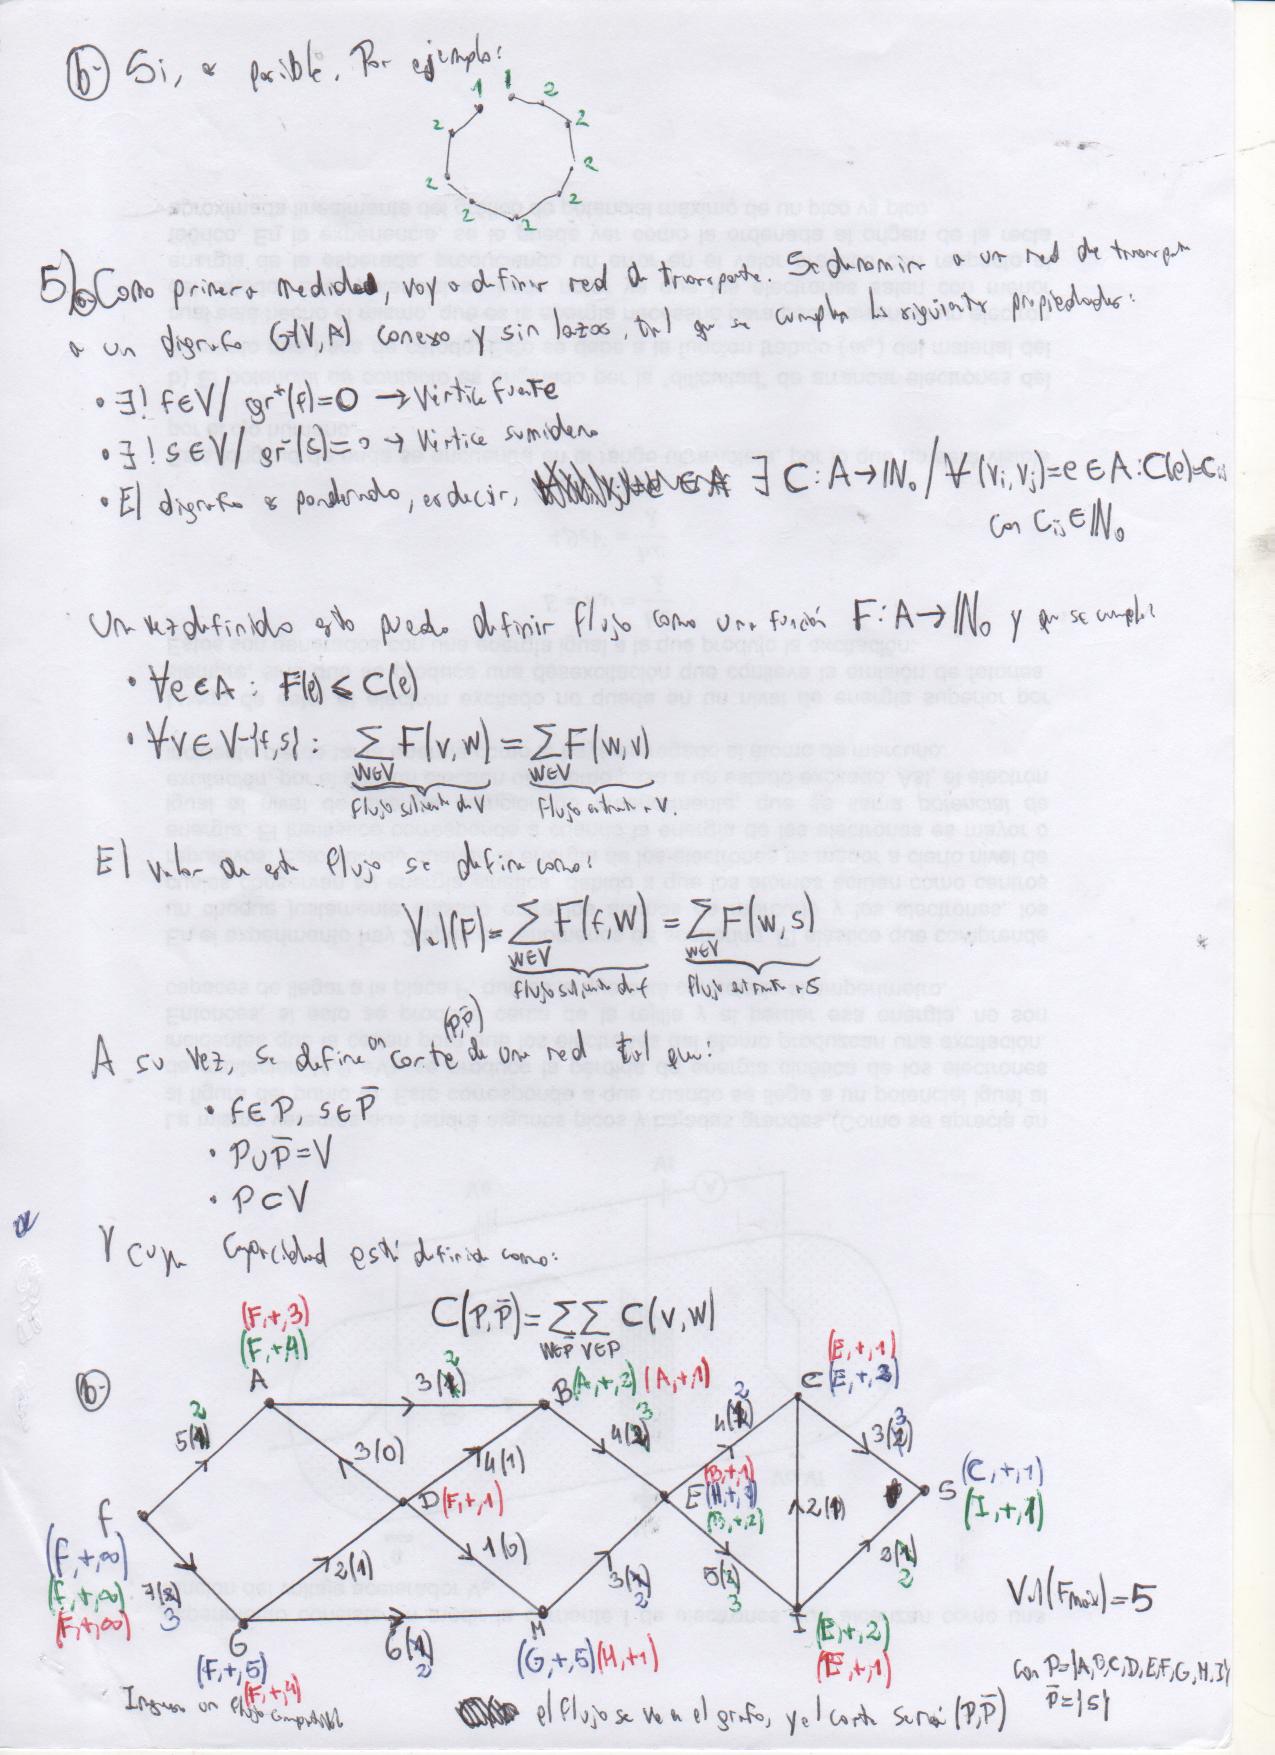 b- Si, es posible. Por ejemplo:
1 1 2
2 2
2 2
2 2
2
5) a) Como primera medida, voy a definir red de transporte. Se denomina a un red de transporte
a un digrafo G(V,A) conexo y sin lazos, tal que se cumplan las siguientes propiedades:
• ∃! f∈V/ gr⁺(f)=0 → Vértice fuente
• ∃! s∈V/ gr⁻(s)=0 → Vértice sumidero
• El digrafo es ponderado, es decir, ∃ C: A→ℕ₀ / ∀(vi,vj)=e∈A: C(e)=Cij
con Cij∈ℕ₀
Una vez definido esto puedo definir flujo como una función F: A→ℕ₀ y que se cumple:
• ∀e∈A: F(e) ≤ C(e)
• ∀v∈V-{f,s}: ∑ F(v,w) = ∑ F(w,v)
w∈V w∈V
flujo saliente de v flujo entrante a v.
El valor de este flujo se define como:
Val(F)= ∑ F(f,w) = ∑ F(w,s)
w∈V w∈V
flujo saliente de f flujo entrante a s
(P,P̄)
A su vez, se define un corte de una red tal que:
• f∈P, s∈P̄
• P∪P̄=V
• P⊂V
Y cuya capacidad está definida como:
C(P,P̄)= ∑ ∑ C(v,w)
w∈P̄ v∈P
(F,+,3)
(F,+4)
(E,+,1)
(E,+,2)
b- A 3( ) 2 B (A,+,2) (A,+1) C
2 5( ) 3(0) 4(1) 4( ) 3 4( ) 2 3( ) 3
f D (F,+,1) E (B,+1) (H,+,1) (B,+,2) 2(1) S (C,+,1)
(I,+,1)
(F,+,∞)
(f,+,∞)
(F,+,∞)
7( ) 3 2(1) 1(0) 3( ) 2 5( ) 3 2
G 6( ) 2 H I (E,+,2)
(E,+,1)
(F,+,5) (G,+,5) (H,+1)
(F,+,4)
Val(Fmáx)=5
Ingreso un flujo compatible
el flujo se ve en el grafo, y el corte será (P,P̄)
con P={A,B,C,D,E,F,G,H,I}
P̄={S}